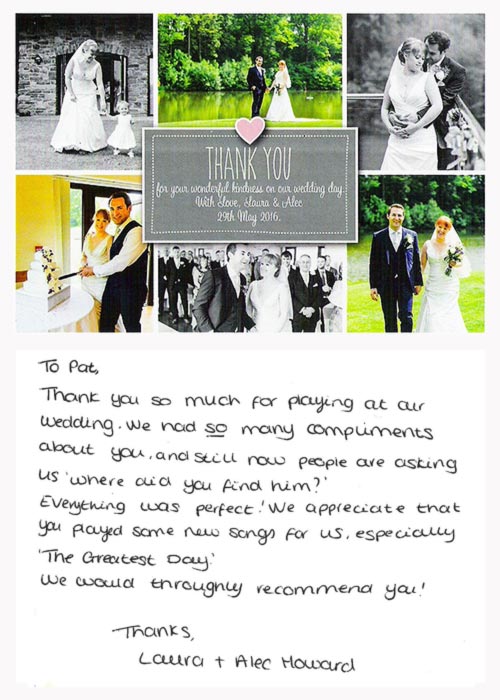 THANK YOU
for your wonderful kindness on our wedding day.
With love, Laura & Alec
29th May 2016.
To Pat,
Thank you so much for playing at our
wedding. We had so many compliments
about you, and still now people are asking
us 'where did you find him?'
Everything was perfect! We appreciate that
you played some new songs for us, especially
'The Greatest Day.'
We would throughly recommend you!
Thanks,
Laura + Alec Howard